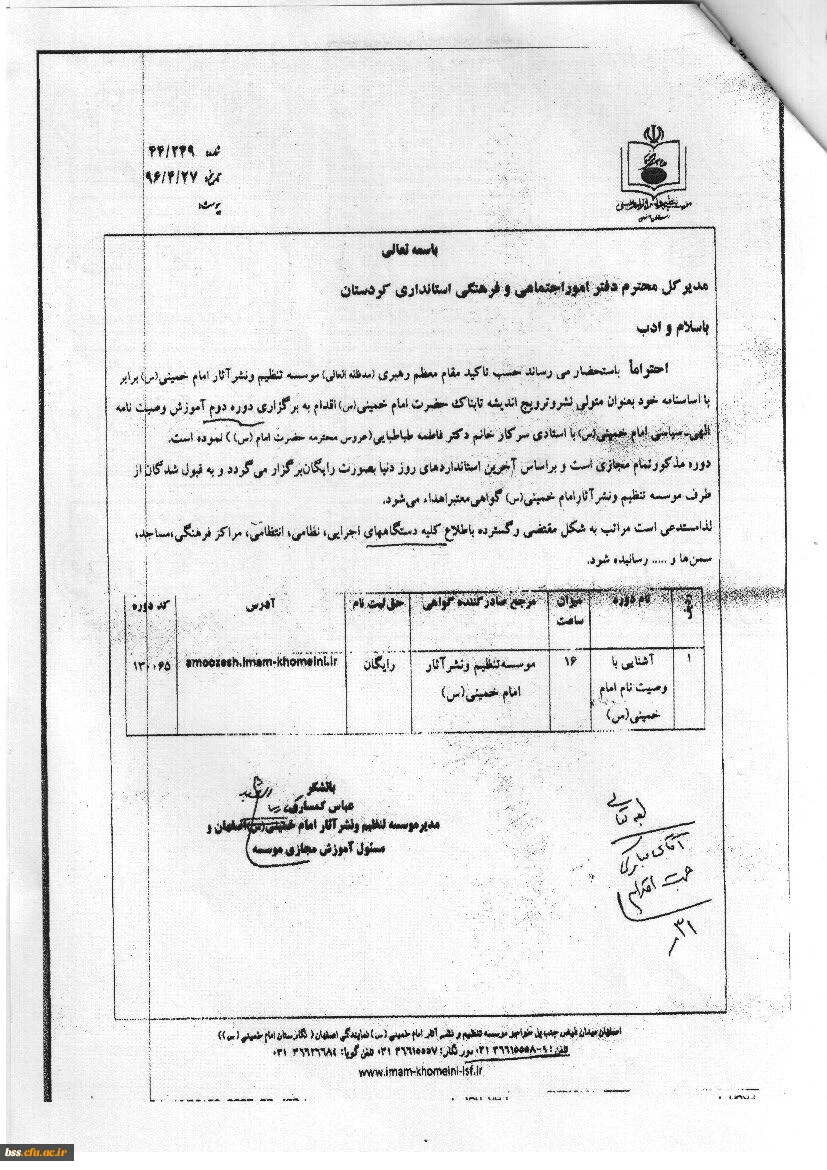 شماره: ۴۴/۲۴۹
تاریخ: ۹۶/۴/۲۷
پیوست:
باسمه تعالی
مدیرکل محترم دفتر اموراجتماعی و فرهنگی استانداری کردستان
باسلام و ادب
احتراماً باستحضار می رساند حسب تاکید مقام معظم رهبری (مدظله العالی) موسسه تنظیم ونشرآثار امام خمینی(س) برابر
با اساسنامه خود بعنوان متولی نشروترویج اندیشه تابناک حضرت امام خمینی(س) اقدام به برگزاری دوره دوم آموزش وصیت نامه
الهی-سیاسی امام خمینی(س) با استادی سرکار خانم دکتر فاطمه طباطبایی(عروس محترمه حضرت امام(س)) نموده است.
دوره مذکورتمام مجازی است و براساس آخرین استانداردهای روز دنیا بصورت رایگان‌برگزار می‌گردد و به قبول شدگان از
طرف موسسه تنظیم ونشرآثارامام خمینی(س) گواهی‌معتبراهداء می‌شود.
لذامستدعی است مراتب به شکل مقتضی وگسترده باطلاع کلیه دستگاههای اجرایی، نظامی، انتظامی، مراکز فرهنگی،مساجد،
سمن‌ها و ..... رسانیده شود.
ردیف نام دوره میزان ساعت مرجع صادرکننده گواهی حق ثبت نام آدرس کد دوره
۱ آشنایی با وصیت نام امام خمینی(س) ۱۶ موسسه تنظیم ونشرآثار امام خمینی(س) رایگان amoozesh.imam-khomeini.ir ۱۳۰۰۶۵
باتشکر
عباس کمساری
مدیرموسسه تنظیم ونشرآثار امام خمینی(س)اصفهان و
مسئول آموزش مجازی موسسه
آقای
جهت اقدام
۳۱
اصفهان میدان فیض جنب پل خواجو موسسه تنظیم و نشر آثار امام خمینی (س) نمایندگی اصفهان ( نگارستان امام خمینی (س))
تلفن: ۹-۳۶۶۱۵۵۵۸ ۰۳۱ دورنگار: ۳۶۶۱۵۵۵۷ ۰۳۱ تلفن گویا: ۳۶۶۲۶۶۸۴ ۰۳۱
www.imam-khomeini-isf.ir
bss.cfu.ac.ir